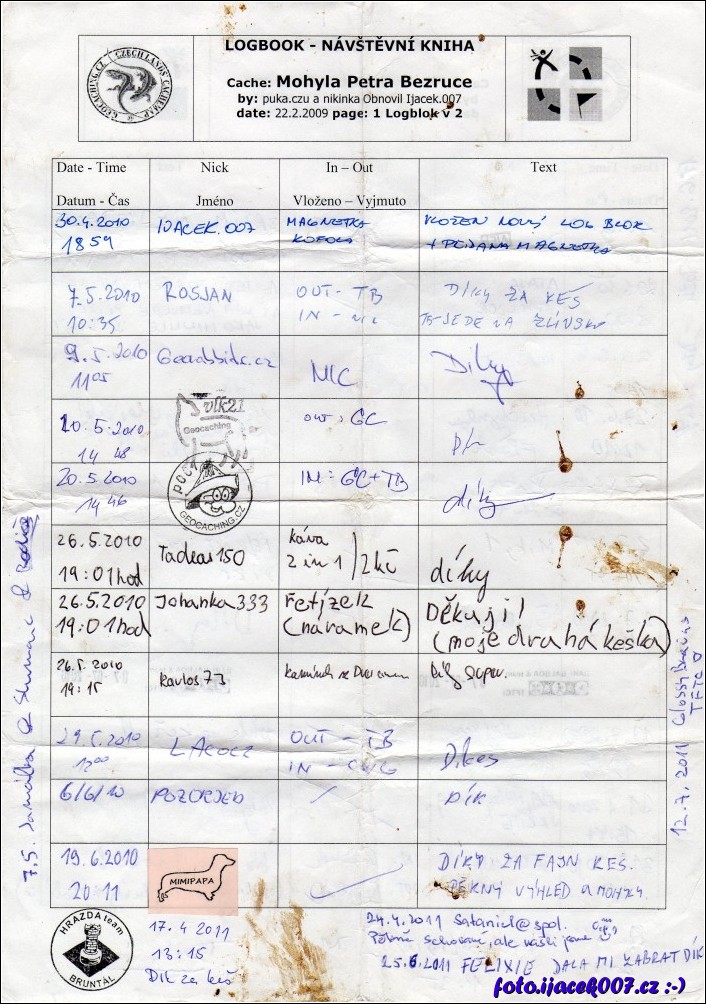 LOGBOOK - NÁVŠTĚVNÍ KNIHA
Cache: Mohyla Petra Bezruce
by: puka.czu a nikinka Obnovil Ijacek.007
date: 22.2.2009 page: 1 Logblok v 2
GEOCACHING.CZ CZECH LANDS CACHEMAP
Date - Time Nick In – Out Text
Datum - Čas Jméno Vloženo – Vyjmuto
30.4.2010 IJACEK.007 MAGNETKA VLOŽEN NOVÝ LOG BLOK
18 59 KOFOLA + PSANA MAGNETKA
7.5.2010 ROSJAN OUT - TB DÍKY ZA KEŠ
10:35 IN - NIC TB JEDE NA ZLÍNSKO
9.5.2010 NIC Díky
11 05
20.5.2010 vlk21 OUT: GC
14 48 Geocaching
20.5.2010 poc1 IN: GC+TB díky
14 46 GEOCACHING.CZ
26.5.2010 Tadeas150 káva díky
19:01hod 2 in 1 / 2kč
26.5.2010 Johanka333 Řetízek Děkuji!
19:01hod (náramek) (moje druhá keška)
26.5.2010 Karlos73 Díky super.
19:15
29.5.2010 LACOCZ OUT - TB Dikes
12 00 IN - CWG
6/6/10 POZORJED / DÍK
19.6.2010 MIMIPAPA DÍKY ZA FAJN KEŠ.
20 11 PĚKNÝ VÝHLED A MOHYLA.
HRAZDA team BRUNTÁL
17.4 2011
13:15
Dík za keš
24.4.2011 Sataniel@spol.
Pěkně schované, ale našli jsme
25.6.2011 FELIXIE DALA MI ZABRAT DÍK
7.5.
12.7.2011 TFTC
foto.ijacek007.cz :-)